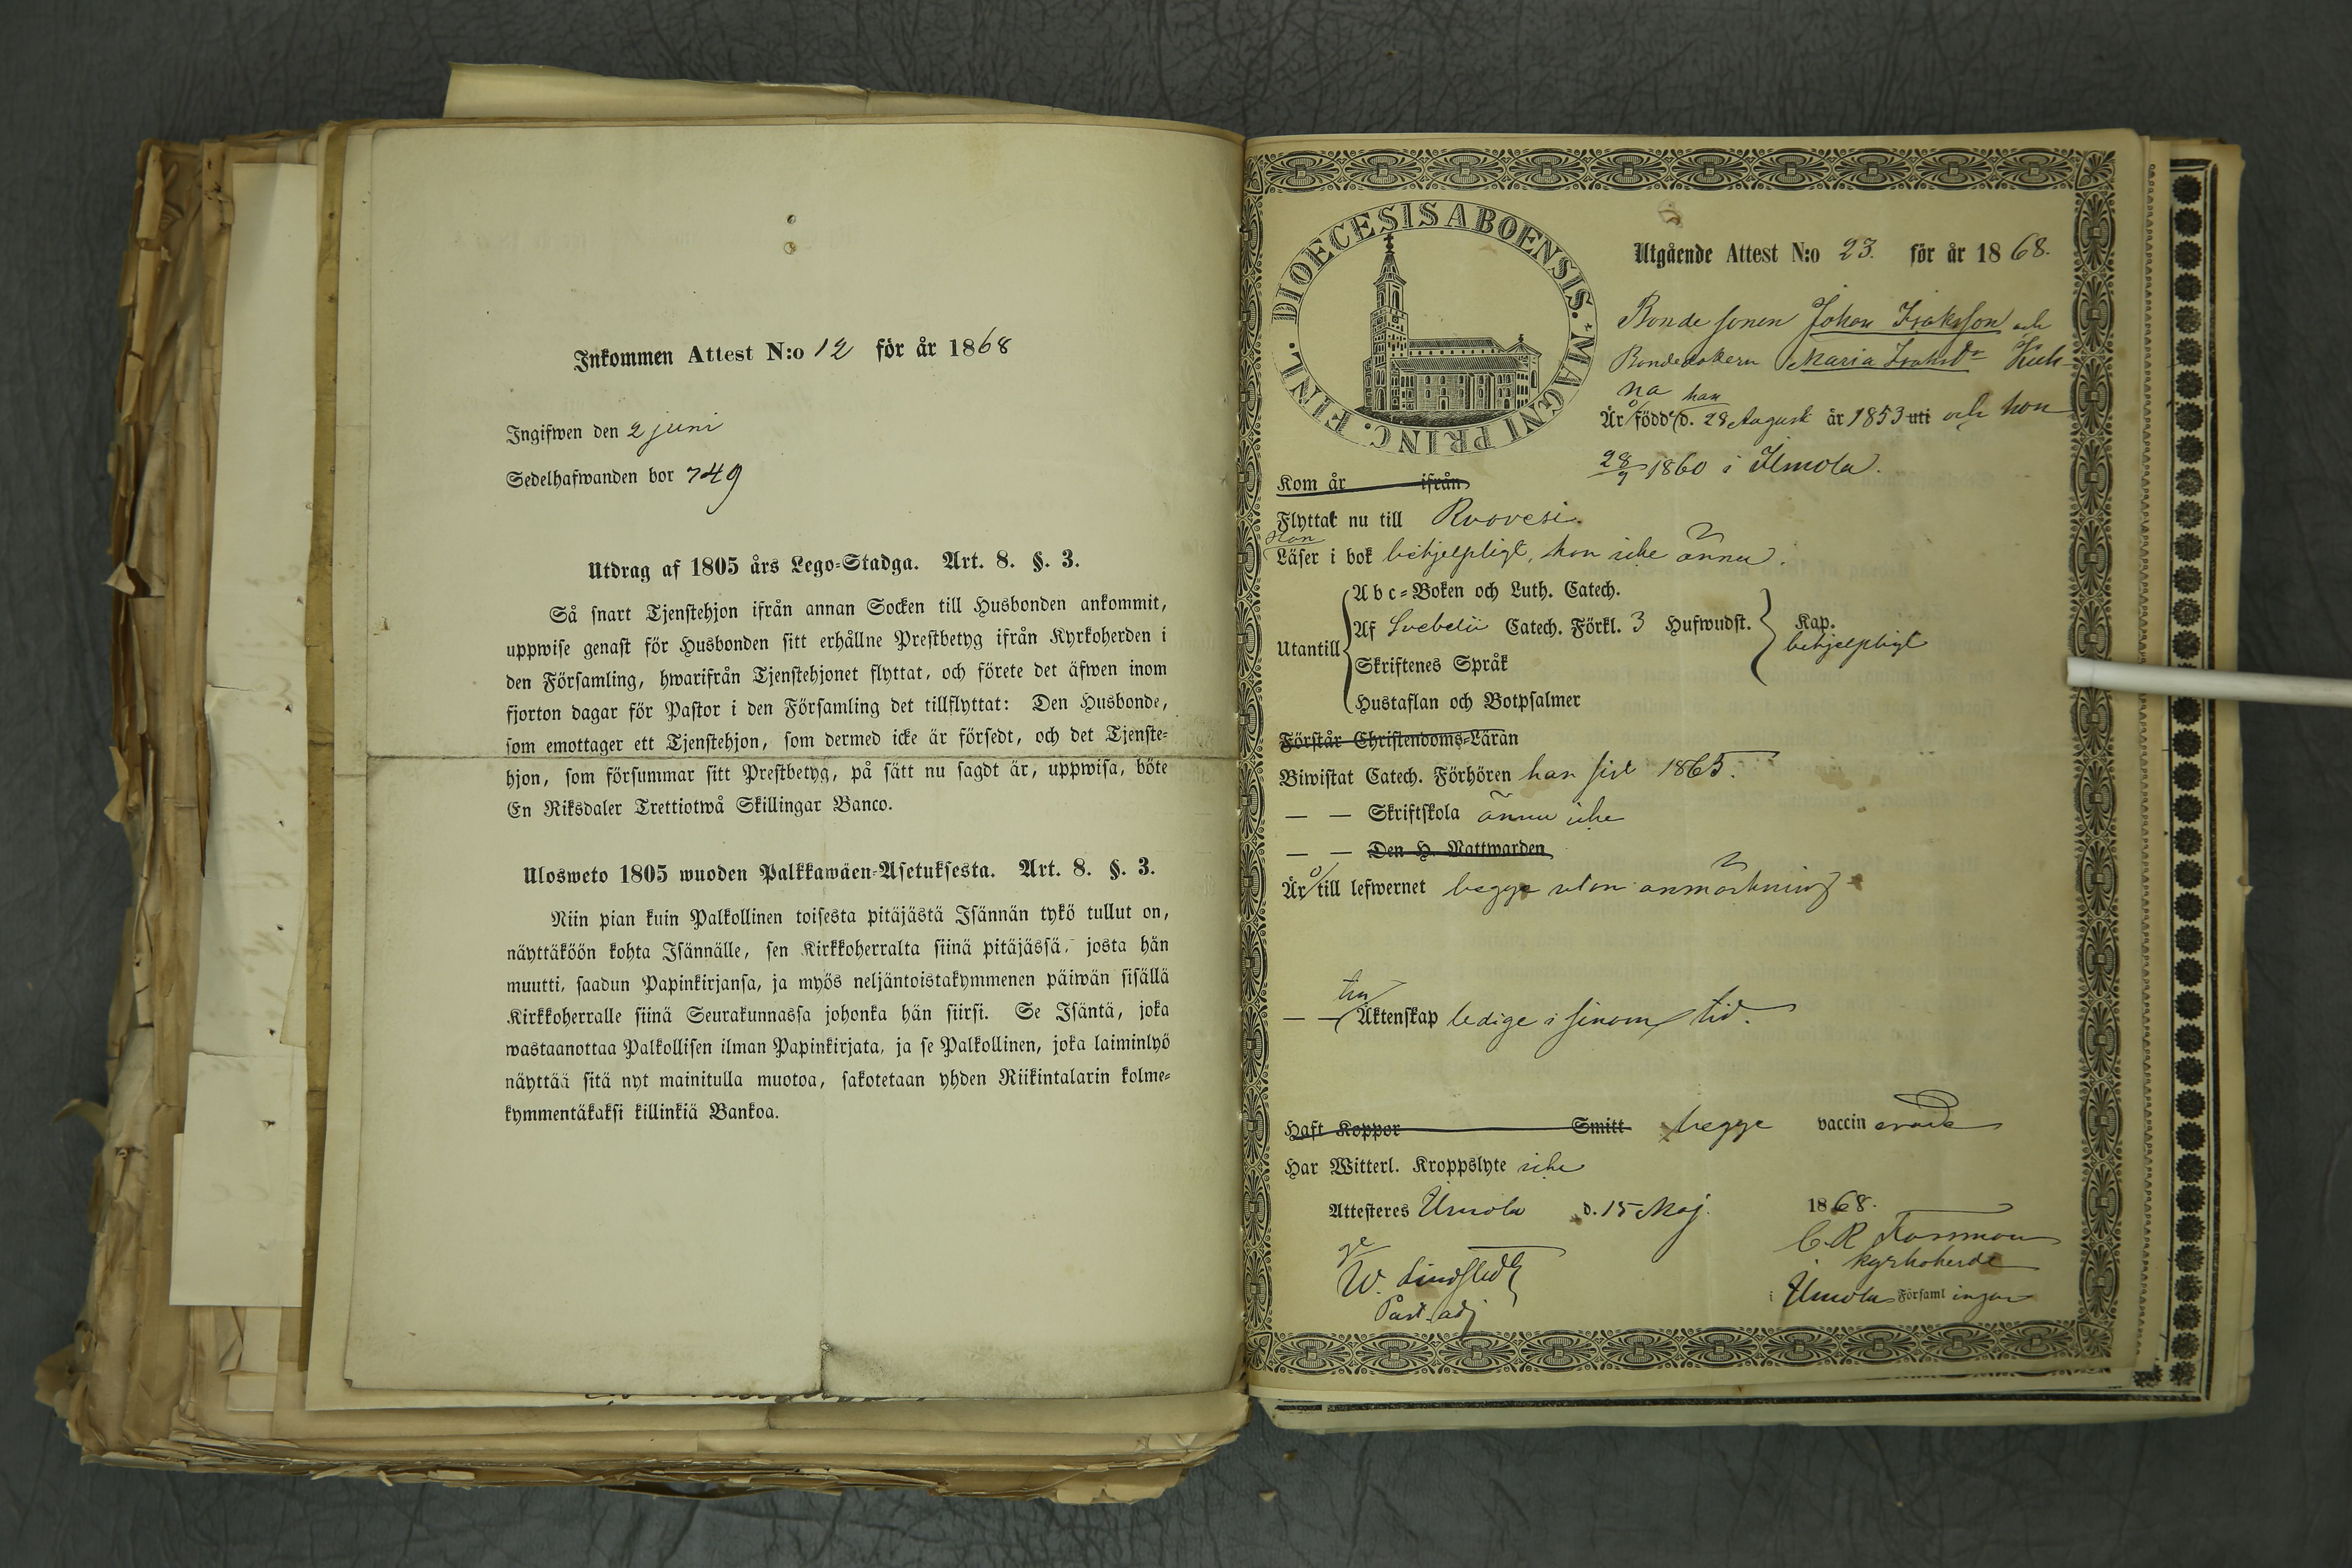 Inkommen Attest N:o 12 för år 1868
Ingifwen den 2 juni
Sedelhafwanden bor 749
Utdrag af 1805 års Lego-Stadga. Art. 8. §. 3.
Så snart Tjenstehjon ifrån annan Socken till Husbonden ankommit,
uppwise genast för Husbonden sitt erhållne Prestbetyg ifrån Kyrkoherden i
den Församling, hwarifrån Tjenstehjonet flyttat, och förete det äfwen inom
fjorton dagar för Pastor i den Församling det tillflyttat: Den Husbonde,
som emottager ett Tjenstehjon, som dermed icke är försedt, och det Tjenste-
hjon, som försummar sitt Prestbetyg, på sätt nu sagdt är, uppwisa, böte
En Riksdaler Trettiotwå Skillingar Banco.
Ulosweto 1805 wuoden Palkkawäen-Asetuksesta. Art. 8. §. 3.
Niin pian kuin Palkollinen toisesta pitäjästä Isännän tykö tullut on,
näyttäköön kohta Isännälle, sen Kirkkoherralta siinä pitäjässä, josta hän
muutti, saadun Papinkirjansa, ja myös neljäntoistakymmenen päiwän sisällä
Kirkkoherralle siinä Seurakunnassa johonka hän siirsi. Se Isäntä, joka
wastaanottaa Palkollisen ilman Papinkirjata, ja se Palkollinen, joka laiminlyö
näyttää sitä nyt mainitulla muotoa, sakotetaan yhden Riikintalarin kolme-
kymmentäkaksi killinkiä Bankoa.
DIOECESIS ABOENSIS. * MAGNI PRINC. FINL.
Utgående Attest N:o 23. för år 1868.
Bonde sonen Johan Isaksson och
Bondedottern Maria Isaksdr
na han
År född d. 28 August år 1853 uti och hon
28/9 1860 i Ilmola.
Kom år ifrån
Flyttat nu till Ruovesi.
Han
Läser i bok behjelpligt, hon icke ännu.
Abc-Boken och Luth. Catech.
Utantill Af Svebelii Catech. Förkl. 3 Hufwudst. Kap.
behjelpligt
Skriftenes Språk
Hustaflan och Botpsalmer
Förstår Christendoms-Läran
Biwistat Catech. Förhören han sist 1865.
— — Skriftskola ännu icke
— — Den H. Nattwarden
År till lefwernet begge utan anmärkning
till
— — Äktenskap ledige i sinom tid.
Haft Koppor Smitt begge vaccinerade
Har Witterl. Kroppslyte icke
Attesteres Ilmola d. 15 Maj. 1868.
C. R. Forsman
kyrkoherde
i Ilmola Församlingar
W. Lindstedt
Past. adj